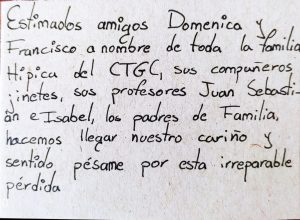 Estimados amigos Domenica y
Francisco a nombre de toda la familia
Hípica del CTGC, sus compañeros
jinetes, sus profesores Juan Sebasti-
án e Isabel, los padres de Familia,
hacemos llegar nuestro cariño y
sentido pésame por esta irreparable
pérdida